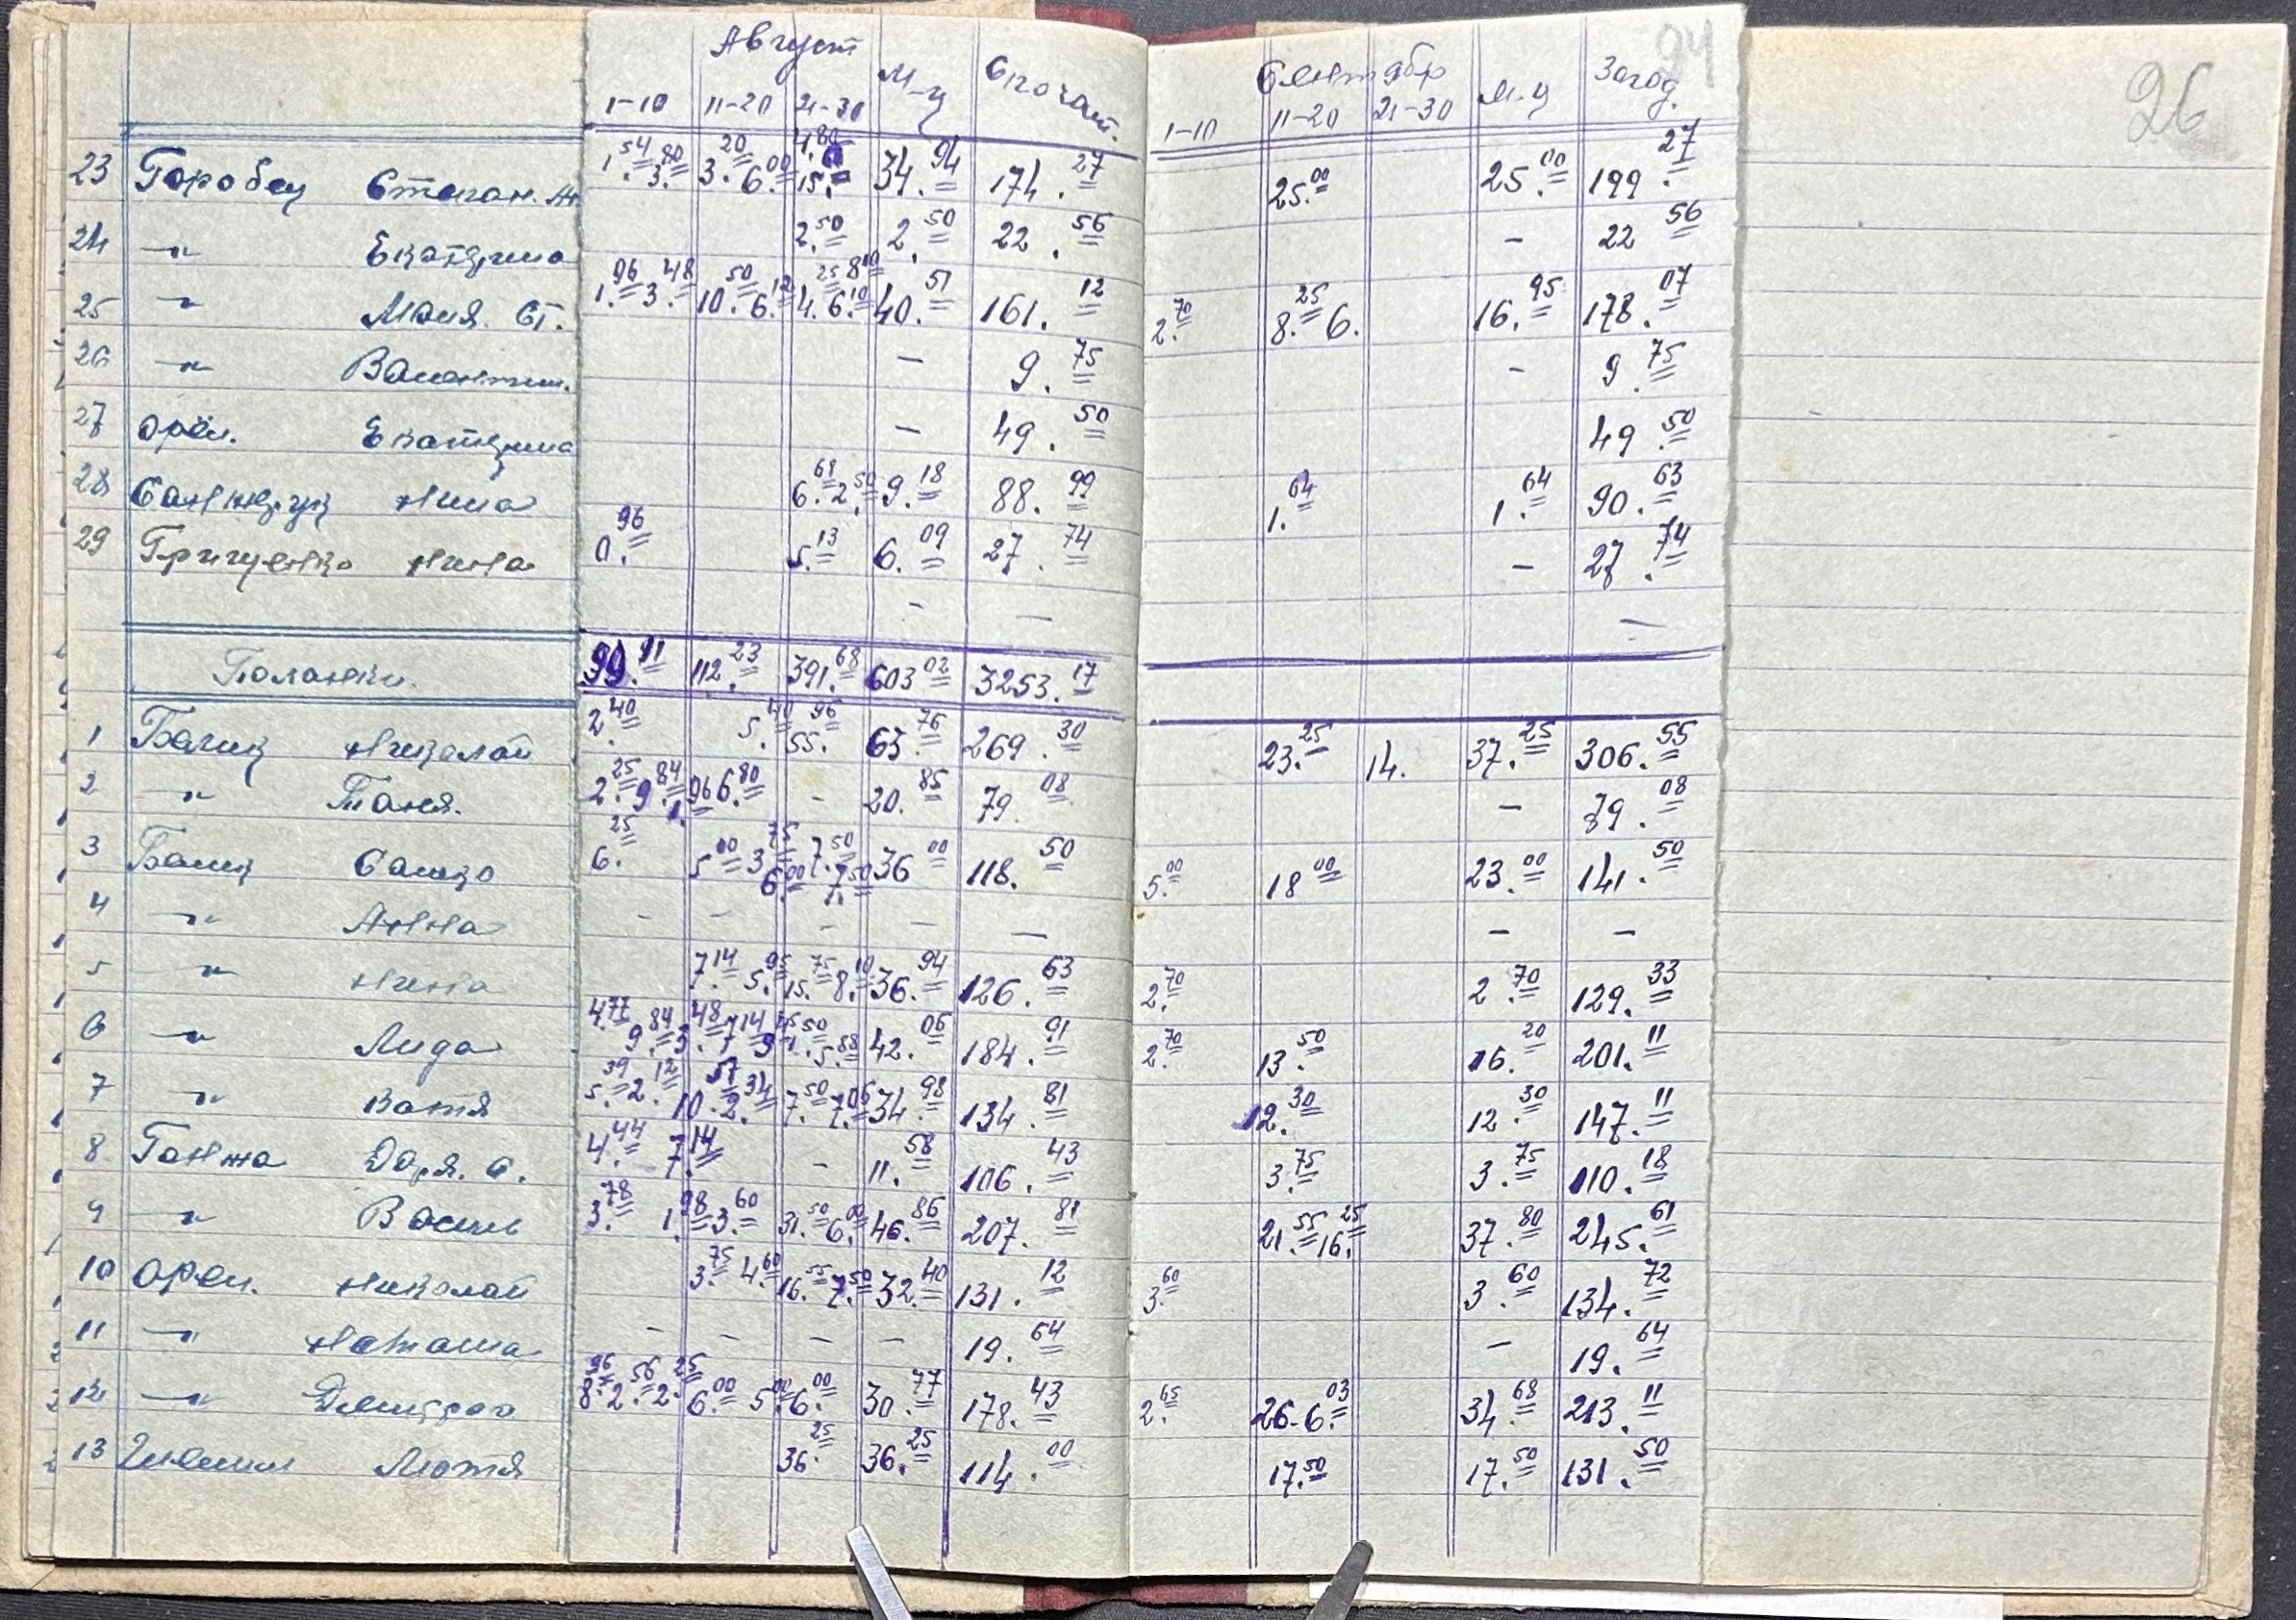 Август М-ц Спочат. Сентябр М-ц Загод. 94 26
1-10 11-20 21-30 1-10 11-20 21-30
23 Горобец Степан. 1.54 3.80 3.20 6.00 4.80 15. 34.94 174.27 25.00 25.00 199.27
24 –"– Екатерина 2.50 2.50 22.56 – 22 56
25 –"– Маня. Ст. 1.96 3.48 10.50 6.12 4.25 8.10 6.10 40.51 161.12 2.70 8.25 6. 16.95 178.07
26 –"– Валентин. – 9.75 – 9.75
27 Орел. Екатерина – 49.50 49.50
28 Нина 6.68 2.50 9.18 88.99 1.64 1.64 90.63
29 Грищенко Нина 0.96 5.13 6.09 27.74 – 27.74
– — —
Поланки. 99.11 112.23 391.68 603.02 3253.17
1 Багиц Николай 2.40 5.40 55.96 63.76 269.30 23.25 14. 37.25 306.55
2 –"– Таня. 2.25 9.84 1.96 6.80 – 20.85 79.08 – 79.08
3 Сашко 6.25 5.00 3.75 6.00 7.50 7.50 36 00 118.50 5.00 18 00 23.00 141.50
4 –"– Анна – – – – — – –
5 –"– Нина 7.14 5.95 15.75 8.10 36.94 126.63 2.70 2.70 129.33
6 –"– Лида 4.77 9.84 3.48 7.14 5.88 42.06 184.91 2.70 13.50 16.20 201.11
7 –"– Катя 5.39 2.12 10.57 2.34 7.50 7.06 34.98 134.81 12.30 12.30 147.11
8 Ганжа Даря. С. 4.44 7.14 – 11.58 106.43 3.75 3.75 110.18
9 –"– Василь 3.78 1.98 3.60 31.50 6.00 46.86 207.81 21.55 16.25 37.80 245.61
10 Орел. Николай 3.75 4.60 16.55 7.50 32.40 131.12 3.60 3.60 134.72
11 –"– Наташа – – – – 19.64 – 19.64
12 –"– Дмитро 8.96 2.56 2.25 6.00 5.00 6.00 30.77 178.43 2.65 26- 6.03 34.68 213.11
13 Мотя 36.25 36.25 114.00 17.50 17.50 131.50